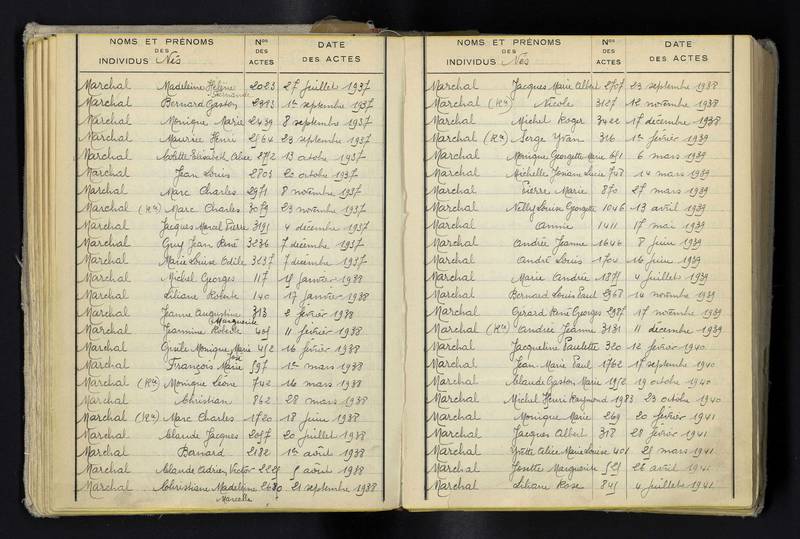 NOMS ET PRÉNOMS
DES
INDIVIDUS Nés
Nos
DES
ACTES
DATE
DES ACTES
Marchal Madeleine Hélène 2023 27 juillet 1937
Fernande
Marchal Bernard Gaston 1er septembre 1937
Marchal Monique Marie 2439 8 septembre 1937
Marchal Maurice Henri 2564 23 septembre 1937
Marchal Colette Elisabeth Alice 13 octobre 1937
Marchal Jean Louis 2803 20 octobre 1937
Marchal Marc Charles 2971 8 novembre 1937
Marchal (Rn) Marc Charles 3079 23 novembre 1937
Marchal Jacques Marcel Pierre 3191 4 décembre 1937
Marchal Guy Jean René 3236 7 décembre 1937
Marchal Marie Louise Odile 3237 7 décembre 1937
Marchal Michel Georges 117 janvier 1938
Marchal Liliane 140 17 janvier 1938
Marchal Jeanne Augustine 313 2 février 1938
Marguerite
Marchal Jeannine 11 février 1938
Marchal Gisèle Monique Marie 452 16 février 1938
José
Marchal François Marie 597 1er mars 1938
Marchal (Rn) Monique Léone 742 16 mars 1938
Marchal Christian 862 28 mars 1938
Marchal (Rn) Marc Charles 1720 18 juin 1938
Marchal Claude Jacques 2057 20 juillet 1938
Marchal Bernard 2182 1er août 1938
Marchal Claude Adrien Victor août 1938
Marchal Christiane Madeleine 2680 21 septembre 1938
Marcelle
NOMS ET PRÉNOMS
DES
INDIVIDUS Nés
Nos
DES
ACTES
DATE
DES ACTES
Marchal Jacques Marie Albert 2707 23 septembre 1938
Marchal (Rn) Nicole 3127 12 novembre 1938
Marchal Michel Roger 3422 17 décembre 1938
Marchal (Rn) Serge Yvan 316 1er février 1939
Marchal Monique Georgette Marie 651 6 mars 1939
Marchal Michelle Josiane Lucie 748 14 mars 1939
Marchal Pierre Marie 870 27 mars 1939
Marchal Nelly Louise Georgette 1046 13 avril 1939
Marchal Annie 1411 17 mai 1939
Marchal Andrée Jeanne 1646 8 juin 1939
Marchal André Louis 1704 16 juin 1939
Marchal Marie Andrée 1871 4 juillet 1939
Marchal Bernard Louis Paul 2968 14 novembre 1939
Marchal Gérard René Georges 2987 17 novembre 1939
Marchal (Rn) Andrée Jeanne 3131 11 décembre 1939
Marchal Jacqueline Paulette 320 12 février 1940
Marchal Jean Marie Paul 1762 17 septembre 1940
Marchal Claude Gaston Marie 1952 19 octobre 1940
Marchal Michel Henri Raymond 1983 23 octobre 1940
Marchal Monique Marie 269 20 février 1941
Marchal Jacques Albert 318 28 février 1941
Marchal Yvette Alice Marie Louise 401 mars 1941
Marchal Josette Marguerite 525 26 avril 1941
Marchal Liliane Rose 841 4 juillet 1941